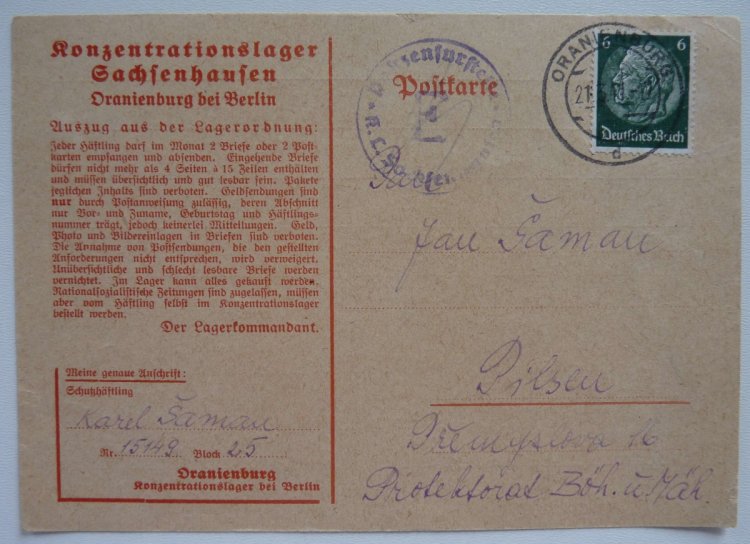 Konzentrationslager
Sachsenhausen
Oranienburg bei Berlin
Auszug aus der Lagerordnung:
Jeder Häftling darf im Monat 2 Briefe oder 2 Post-
karten empfangen und absenden. Eingehende Briefe
dürfen nicht mehr als 4 Seiten à 15 Zeilen enthalten
und müssen übersichtlich und gut lesbar sein. Pakete
jeglichen Inhalts sind verboten. Geldsendungen sind
nur durch Postanweisung zulässig, deren Abschnitt
nur Vor- und Zuname, Geburtstag und Häftlings-
nummer trägt, jedoch keinerlei Mitteilungen. Geld,
Photo und Bildereinlagen in Briefen sind verboten.
Die Annahme von Postsendungen, die den gestellten
Anforderungen nicht entsprechen, wird verweigert.
Unübersichtliche und schlecht lesbare Briefe werden
vernichtet. Im Lager kann alles gekauft werden.
Nationalsozialistische Zeitungen sind zugelassen, müssen
aber vom Häftling selbst im Konzentrationslager
bestellt werden.
Der Lagerkommandant.
Meine genaue Anschrift:
Schutzhäftling
Karel Šaman
Nr. 15149 Block 25
Oranienburg
Konzentrationslager bei Berlin
Postkarte
ORANIENBURG
21
d
6 6
Deutsches Reich
Jan Šaman
Pilsen
Přemyslova 16
Protektorat Böh. u. Mäh.